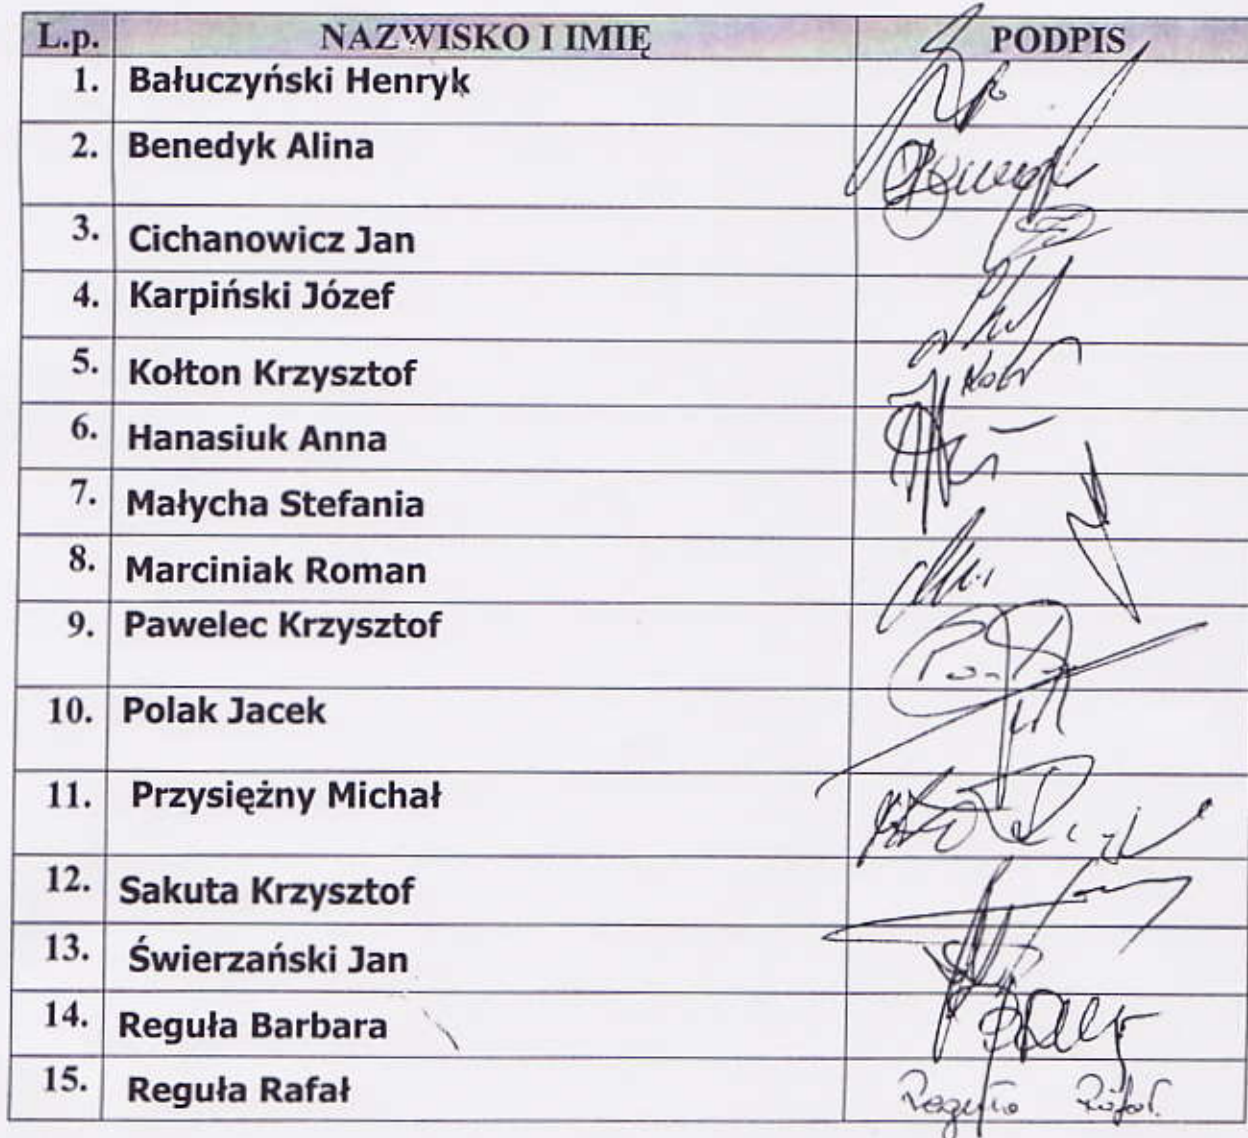 L.p. NAZWISKO I IMIĘ PODPIS
1. Bałuczyński Henryk
2. Benedyk Alina
3. Cichanowicz Jan
4. Karpiński Józef
5. Kołton Krzysztof
6. Hanasiuk Anna
7. Małycha Stefania
8. Marciniak Roman
9. Pawelec Krzysztof
10. Polak Jacek
11. Przysiężny Michał
12. Sakuta Krzysztof
13. Świerzański Jan
14. Reguła Barbara
15. Reguła Rafał Reguła Rafał